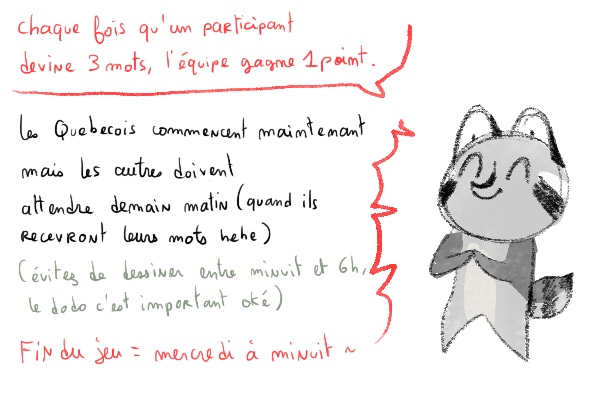 chaque fois qu'un participant
devine 3 mots, l'équipe gagne 1 point.
les Quebecois commencent maintenant
mais les autres doivent
attendre demain matin (quand ils
recevront leurs mots hehe)
(évitez de dessiner entre minuit et 6h,
le dodo c'est important oké)
Fin du jeu = mercredi à minuit ~